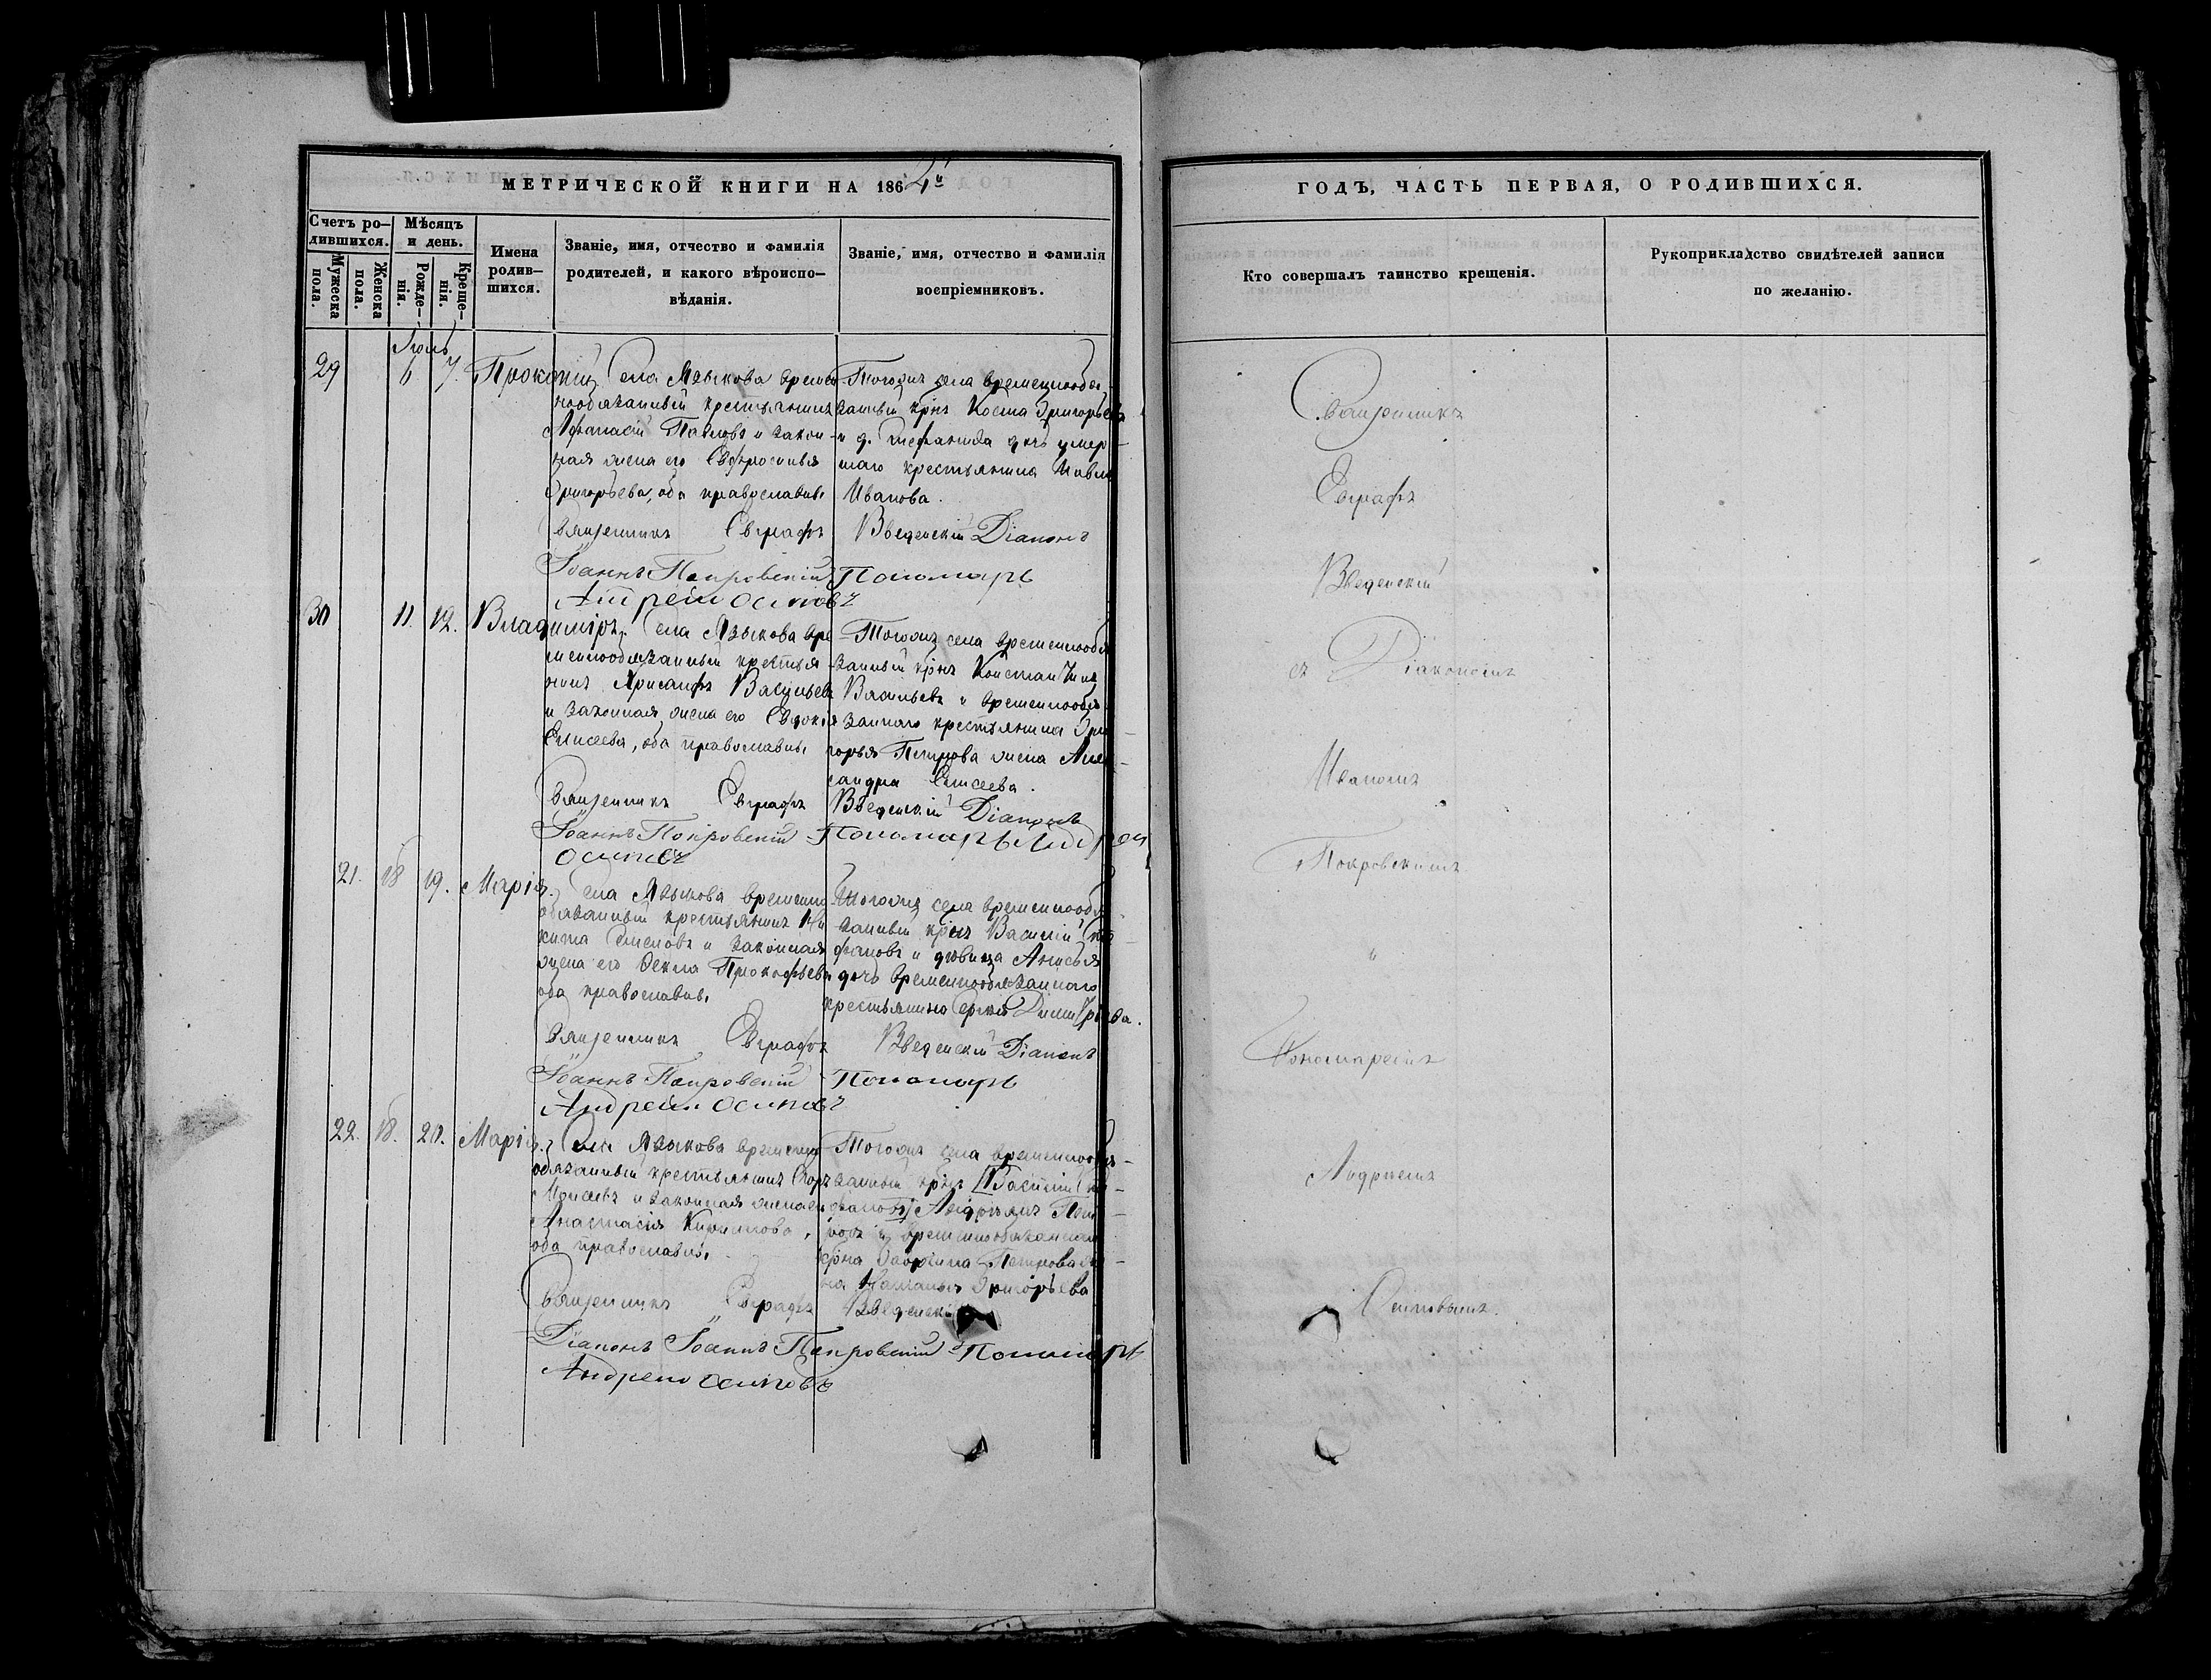 МЕТРИЧЕСКОЙ КНИГИ НА 1862й
Счетъ ро-
дившихся.
Мужеска
пола.
Женска
пола.
Мѣсяцъ
и день.
Рожде-
нія.
Креще-
нія.
Имена
родив-
шихся.
Званіе, имя, отчество и фамилія
родителей, и какого вѣроиспо-
вѣданія.
Званіе, имя, отчество и фамилія
воспріемниковъ.
Іюль
29 6 7. Прокопій
Села Языкова времен-
нообязанный крестьянинъ
Афанасій Павловъ и закон-
ная жена его Евфросинья
Григорьева, оба православн.
Тогожъ села временнообя-
занный крнъ Косма Григорьевъ
и д. Стефанида дчь умер-
шаго крестьянина
Иванова.
Священникъ Евграфъ Введенскій Діаконъ
Іоаннъ Покровскій Пономарь
Андрей Осиповъ
30 11. 12. Владиміръ.
Села Языкова вре-
меннообязанный крестья-
нинъ Хрисанфъ Васильевъ
и законная жена его Евдокія
Елисеева, оба православн.
Тогожъ села временнообя-
занный крнъ Константинъ
Васильевъ и временнообя-
заннаго крестьянина Гри-
горья Петрова жена Алек-
сандра Елисеева.
Священникъ Евграфъ Введенскій Діаконъ
Іоаннъ Покровскій Пономарь Андрей
Осиповъ
21. 18 19. Марія.
Села Языкова временно
обязанный крестьянинъ Ни-
кита Семеновъ и законная
жена его Фекла Прокофьева
оба православн.
Тогожъ села временнообя-
занный крнъ Василій Сте-
фановъ и дѣвица Анисья
дочь временнообязаннаго
крестьянина Сергія Димитріева.
Священникъ Евграфъ Введенскій Діаконъ
Іоаннъ Покровскій Пономарь
Андрей Осиповъ
22. 18. 20. Марія.
Села Языкова временно
обязанный крестьянинъ
Моисѣевъ и законная жена его
Анастасія Кирилова,
оба православн.
Тогожъ села временнообя-
занный крнъ [Василій Сте-
фановъ] Андріянъ Пет-
ровъ и временнообязаннаго
крна Гаврiила Петрова же-
на Наталья Григорьева
Священникъ Евграфъ Введенскій
Діаконъ Іоаннъ Покровскій Пономарь
Андрей Осиповъ
ГОДЪ, ЧАСТЬ ПЕРВАЯ, О РОДИВШИХСЯ.
Кто совершалъ таинство крещенія.
Рукоприкладство свидѣтелей записи
по желанію.
Священникъ
Евграфъ
Введенскій
съ Діакономъ
Иваномъ
Покровскимъ
и
Пономаремъ
Андреемъ
Осиповымъ.